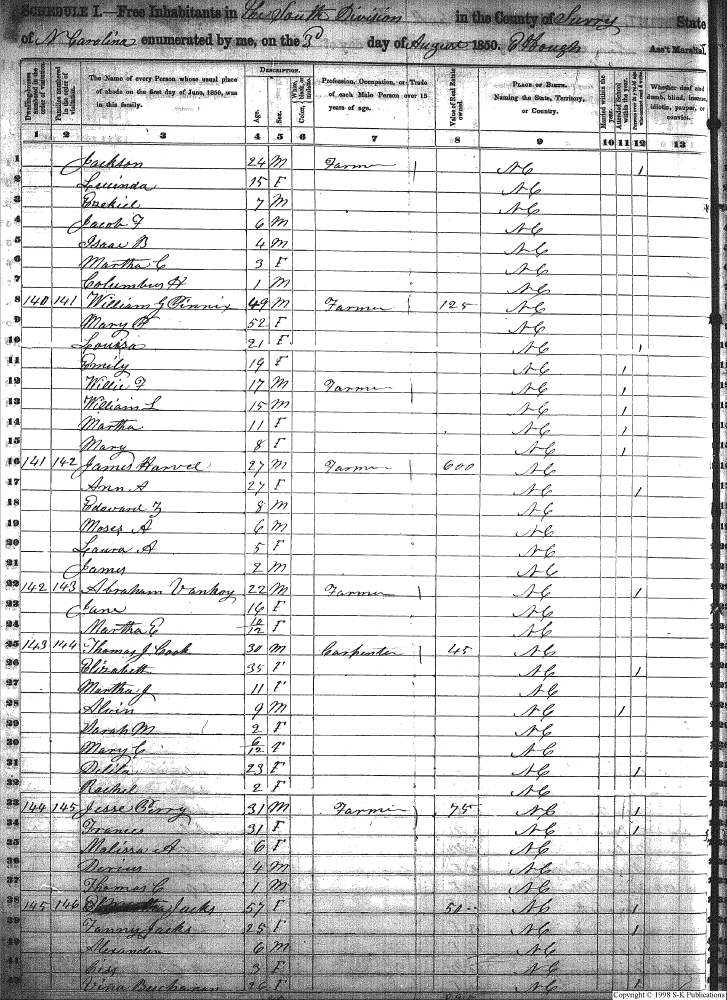 SCHEDULE I.—Free Inhabitants in The South Division in the County of Surry State
of N Carolina enumerated by me, on the 3d day of August 1850. Ass't Marshal.
Dwelling-houses numbered in the order of visitation.
The Name of every Person whose usual place of abode on the first day of June, 1850, was in this family.
DESCRIPTION.
Age.
Sex.
Color,
Profession, Occupation, or Trade of each Male Person over 15 years of age.
Value of Real Estate owned.
PLACE OF BIRTH. Naming the State, Territory, or Country.
Married within the year.
Whether deaf and dumb, blind, insane, idiotic, pauper, or convict.
1 2 3 4 5 6 7 8 9 10 11 12 13
1 Jackson 24 M Farmer NC 1
2 Levinda 15 F NC
3 Ezekiel 7 M NC
4 Jacob F 6 M NC
5 Isaac B 4 M NC
6 Martha C 3 F NC
7 Columbus H 1 M NC
8 140 141 William G Pinnix 49 M Farmer 125 NC
9 Mary 52 F NC
10 Louisa 21 F NC 1
11 Emily 19 F NC 1
12 Willie F 17 M Farmer NC 1
13 William L 15 M NC 1
14 Martha 11 F NC 1
15 Mary 8 F NC 1
16 141 142 James Harvel 27 M Farmer 600 NC
17 Ann A 27 F NC 1
18 Edward Z 8 M NC
19 Moses A 6 M NC
20 Laura A 5 F NC
21 James 2 M NC
22 142 143 Abraham Vanhoy 22 M Farmer NC 1
23 Jane 16 F NC
24 Martha E 10/12 F NC
25 143 144 Thomas J. Cook 30 M Carpenter 45 NC
26 Elizabeth 35 F NC 1
27 Martha J 11 F NC
28 Alvin 9 M NC 1
29 Sarah M 2 F NC
30 Mary C 6/12 F NC
31 Delila 23 F NC 1
32 Rachel 2 F NC
33 144 145 Jesse Berry 31 M Farmer 75 NC 1
34 Frances 31 F NC 1
35 Malissa A 6 F NC
36 Darius 4 M NC
37 Thomas C 1 M NC
38 145 146 Jacks 57 F 50 NC 1
39 Fanny Jacks 25 F NC 1
40 Alexander 6 M NC
41 3 F NC
42 Vina Buchanan 26 F NC 1
Copyright © 1998 S-K Publications